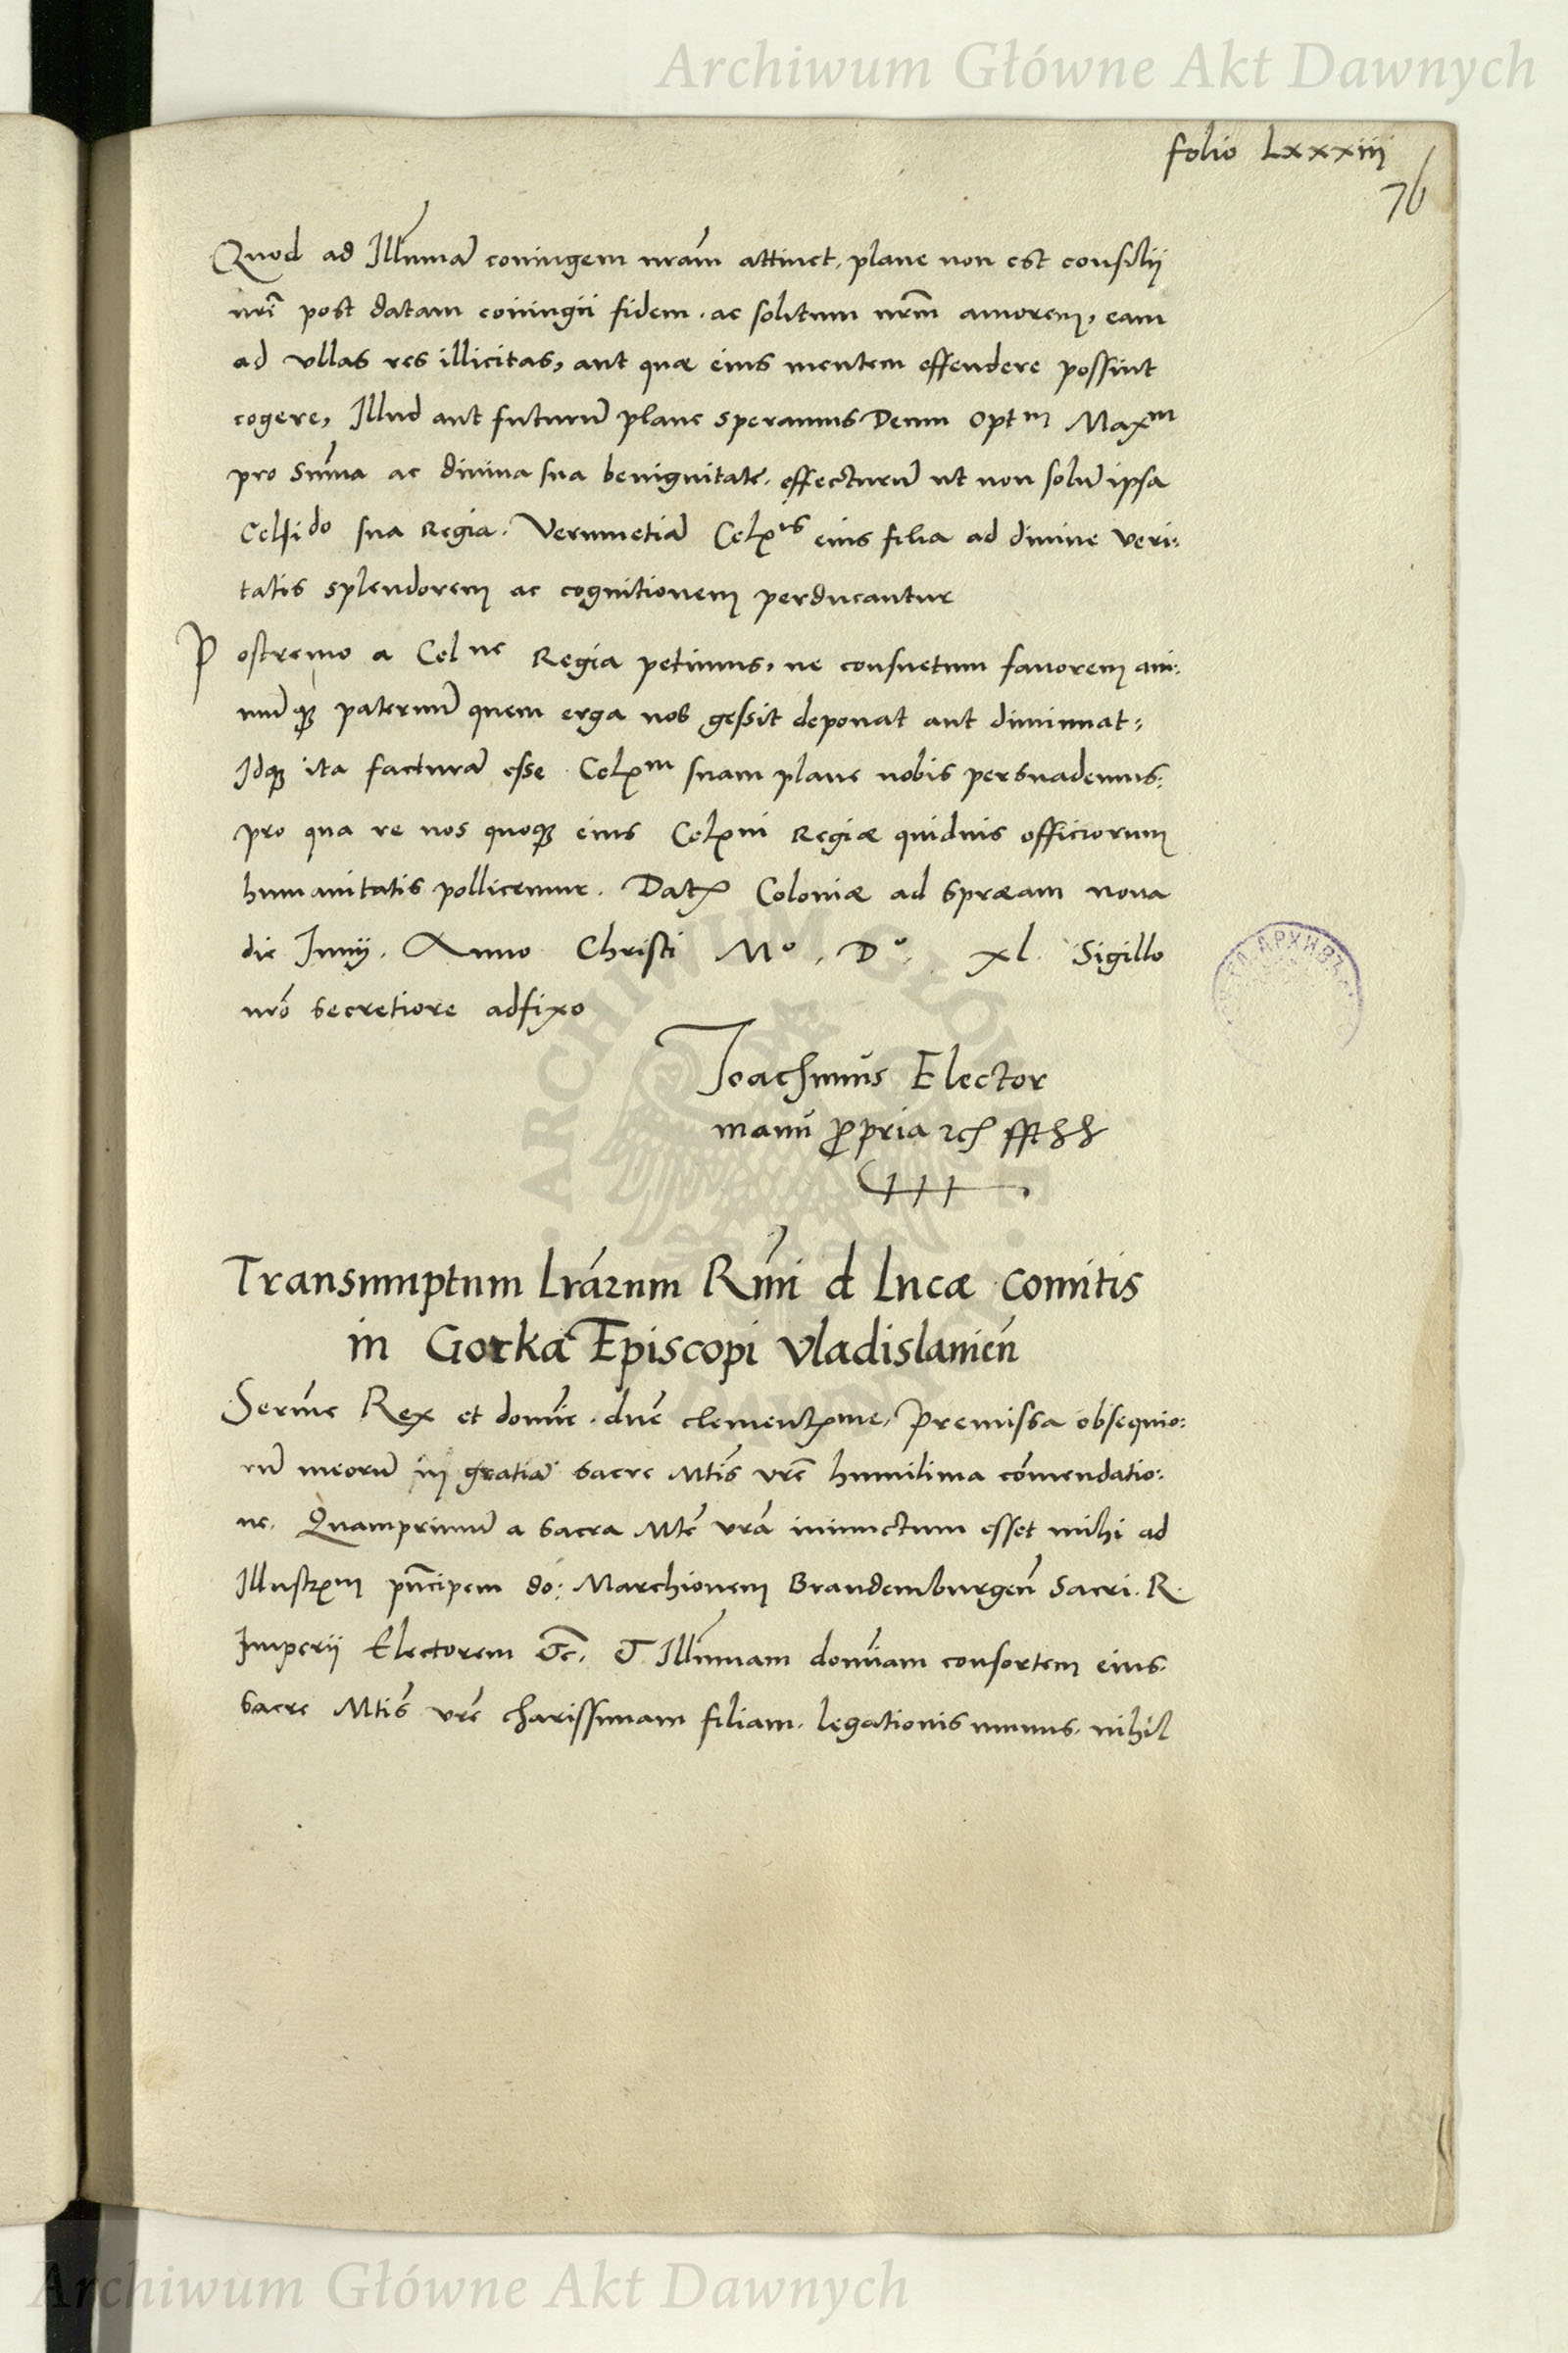 Archiwum Główne Akt Dawnych
folio Lxxxiij
76
Quod ad Illm̃mā coniugem nrãm attinet, plane non est consilij
nrĩ post datam coniugij fidem, ac solitum nrm̃ amorem, eam
ad vllas res illicitas, aut quæ eius mentem offendere possint
cogere, Illud aut futurū plane speramus Deum Optm Maxm
pro Sum̃a ac diuina sua benignitate, effecturū ut non solū ipsa
Celsido sua Regia. Verumetiā Celnis eius filia ad diuine veri:
tatis splendorem ac cognitionem perducantur
Postremo a Celne Regia petimus, ne consuetum fauorem ani:
mūq; paternū quem erga nos gessit deponat aut diminuat,
Idq; ita facturā esse Celnem suam plane nobis persuademus:
pro qua re nos quoq; eius Celni Regiæ quiduis officiorum
humanitatis pollicemur. Dat Coloniæ ad Spræam nona
die Junij. Anno Christi Mo. Do. xl. Sigillo
nrõ secretiore adfixo
Joachimus Elector
manu ꝓpria
Transumptum Lrãrum Rm̃i d Lucæ comitis
in Gorka Episcopi Vladislauieñ
Serm̃e Rex et domĩe, dñe clementme, Premissa obsequio:
rū meorū in gratiā sacre Mtis vrẽ humilima cõmendatio:
ne. Quamprimū a sacra Mte vrã iniunctum esset mihi ad
Illustrm pñcipem do: Marchionem Brandemburgeñ Sacri. R.
Imperij Electorem Etc. Et Illm̃mam domĩam consortem eius,
sacre Mtis vrẽ charissimam filiam, legationis munus, nihil
ARCHIWUM GŁÓWNE
Archiwum Główne Akt Dawnych